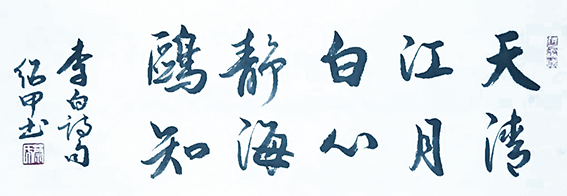 天清
江月
白心
静海
鷗知
李白詩句
紹甲书